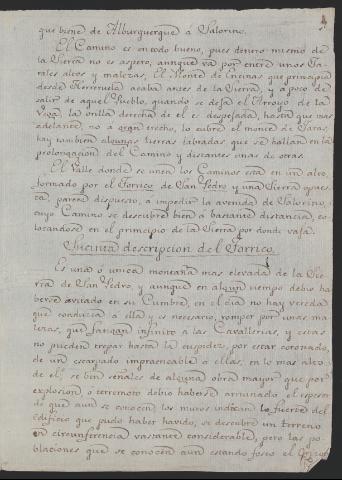 que biene de Alburquerque a Salorino.
El Camino es en todo bueno, pues dentro mismo de
la Sierra no es aspero, aunque va por entre unos Ja-
rales altos y malezas, El Monte de Encinas que principia
desde Herreruela acaba antes de la Sierra, y a poco de
salir de aquel Pueblo, quando se deja el Arroyo de la
la orilla derecha de el es despejada, hasta que mas
adelante, no a gran trecho, lo cubre el monte de Jaras,
hay tambien algunas tierras labradas que se hallan en la
prolongacion del Camino y distantes unas de otras.
El Valle donde se unen los Caminos esta en un alto,
formado por el Torrico de San Pedro y una Sierra opues-
ta, parece dispuesto, a impedir la avenida de Salorino,
cuyo Camino se descubre bien a bastante distancia, co-
locandose en el principio de la Sierra por donde vaja.
Sucinta descripcion del Torrico.
Es una o unica montaña mas elevada de la Sier-
ra de San Pedro, y aunque en algun tiempo debio ha-
berse avitado en su Cumbre, en el dia no hay vereda
que conduzca a ella y es necesario, romper por unas ma-
lezas, que fatigan infinito a las Cavallerias, y estas
no pueden trepar hasta la cuspide, por estar coronado,
de un escarpado impracticable a ellas, en lo mas alto
de el, se ben señales de alguna obra mayor que por
explosion o terremoto debio haberse arruinado, el espesor
de que aun se conocen los muros indican lo fuerte del
Edificio que pudo haber havido, se descubre un terreno
en circunferencia vastante considerable, pero las po-
blaciones que se conocen aun estando foseo el